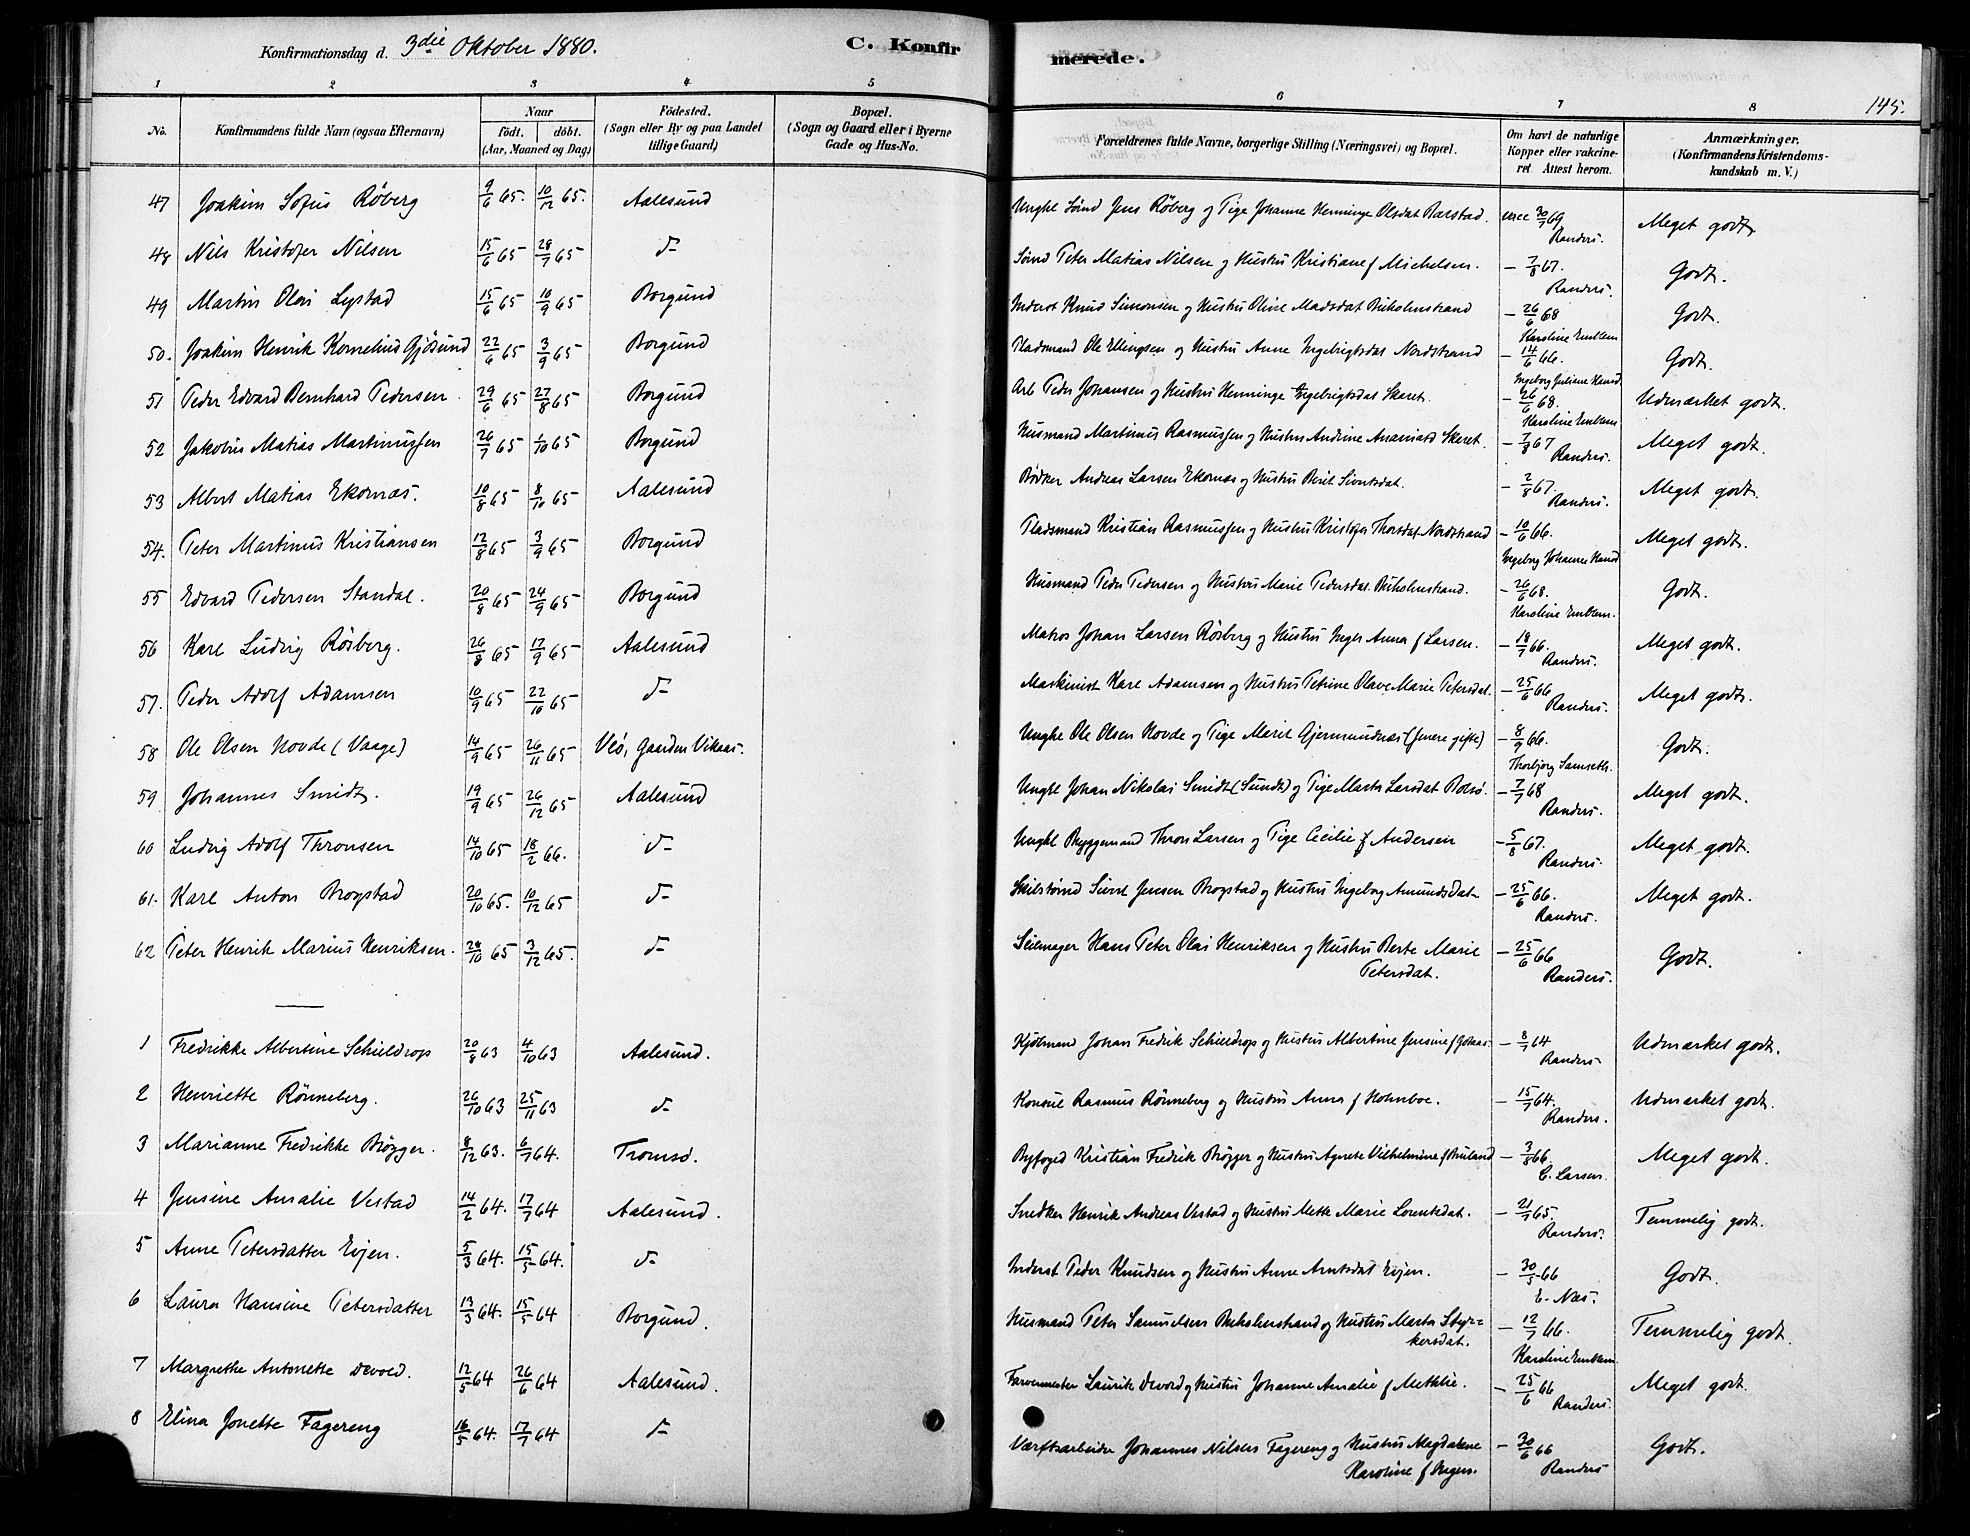 Konfirmationsdag d. 3die Oktober 1880.
C. Konfirmerede.
145.
1 2 3 4 5 6 7 8
No.
Konfirmandens fulde Navn (ogsaa Efternavn)
Naar
født. døbt.
(Aar, Maaned og Dag)
Fødested.
(Sogn eller By og paa Landet
tillige Gaard)
Bopæl.
(Sogn og Gaard eller i Byerne
Gade og Hus-No.
Forældrenes fulde Navne, borgerlige Stilling (Næringsvei) og Bopæl.
Om havt de naturlige
Kopper eller vakcine-
ret Attest herom.
Anmærkninger.
(Konfirmandens Kristendoms-
kundskab m. V.)
47 Joakim Sofus Røberg 9/6 65. 10/12 65. Aalesund Ungkl Jens Røberg og Pige Johanne Henninge Olsdat Barstad. vacc 30/7 69 Meget godt.
Randers.
48 Nils Kristofer Nilsen 15/6 65 28/7 65 d- Peter Matias Nilsen og Hustru Kristiane f Michelsen. – 7/8 67. Godt.
Randers.
49 Martin Olai Lystad 15/6 65 10/9 65 Borgund Inderst Knud Simonsen og Hustru Oline Madsdat Buholmstrand – 26/6 68 Godt.
Karoline Emblem
50. Joakim Henrik Kornelius Gjøsund 22/6 65 3/9 65 Borgund Pladsmand Ole Ellingsen og Hustru Anne Ingebrigtsdat Nordstrand – 14/6 66. Godt.
51 Peder Edvard Bernhard Pedersen 29/6 65 27/8 65 Borgund Arb Peder Johansen og Hustru Henninge Ingebrigtsdat Skaret. – 26/6 68. Udmærket godt.
Karoline Emblem
52 Jakobus Matias Martinussen 26/7 65 1/10 65 Borgund Husmand Martinus Rasmussen og Hustru Andrine Skaret. – 7/8 67 Meget godt.
Randers.
53 Albert Matias Ekornæs. 10/8 65 8/10 65 Aalesund Bødker Andreas Larsen Ekornæs og Hustru Berit Sivertsdat. – 2/8 67. Meget godt.
Randers.
54. Peter Martinus Kristiansen 12/8 65 3/9 65 Borgund Pladsmand Kristian Rasmussen og Hustru Thorsdat Nordstrand – 10/6 66. Meget godt.
55 Edvard Pedersen Standal. 20/8 65 24/9 65 Borgund Husmand Peder Pedersen og Hustru Marie Pedersdat Buholmstrand. – 26/6 68. Godt.
Karoline Emblem.
56 Karl Ludvig Røsberg. 26/8 65 17/9 65 Aalesund Matros Johan Larsen Røsberg og Hustru Inger Anna f Larsen. – 18/7 66. Meget godt.
Randers.
57. Peder Adolf Adamsen 10/9 65 22/10 65 d- Maskinist Karl Adamsen og Hustru Petrine Olave Marie Petersdat. – 25/6 66 Meget godt.
Randers.
58 Ole Olsen Hovde (Vaage) 14/9 65 26/11 65 Veø, Gaarden Vikaas. Ungkl Ole Olsen Hovde og Pige Marit Gjermundnes (senere gifte) – 8/9 66. Godt.
Thorbjørg Samseth.
59 Johannes Smidt. 19/9 65 26/12 65 Aalesund Ungkl Johan Nikolai Smidt (Sundt) og Pige Marta Larsdat Bolsø. – 7/7 68 Meget godt.
Randers.
60 Ludvig Adolf Thronsen 14/10 65 18/2 66. d- Ungkl Byggemand Thron Larsen og Pige Cecilie f Andersen – 5/8 67. Meget godt.
Randers.
61. Karl Anton Brogstad 20/10 65. 10/12 65 d- Sivert Jensen Brogstad og Hustru Ingeborg Amundsdat – 25/6 66. Meget godt.
Randers.
62 Peter Henrik Marius Henriksen. 28/10 65 3/12 65. d- Seilmager Hans Peter Olai Henriksen og Hustru Berte Marie – 25/6 66 Godt.
Petersdat. Randers.
1 Fredrikke Albertine Schieldrop 20/8 63 4/10 63 Aalesund. Kjøbmand Johan Fredrik Schieldrop og Hustru Albertine Jensine – 8/7 64 Udmærket godt.
Randers
2 Henriette Rønneberg. 26/10 63 25/11 63 d- Konsul Rasmus Rønneberg og Hustru Anna f Holmboe. – 15/7 64. Udmærket godt.
Randers.
3 Marianne Fredrikke Brøgger. 8/12 63. 6/7 64. Tromsø. Byfoged Kristian Fredrik Brøgger og Hustru Agnete Vilhelmine – 3/8 66. Meget godt.
C. Larsen.
4 Jensine Amalie Vestad 14/2 64. 17/7 64 Aalesund. Snedker Henrik Andreas Vestad og Hustru Mette Marie Lorentsdat. – 21/7 65. Temmelig godt.
Randers.
5 Anne Petersdatter Eijen. 5/3 64. 15/5 64. d- Inderst Peder Knudsen og Hustru Anne Arntsdat Eijen. – 30/5 66 Godt.
E. Næs.
6 Laura Hansine Petersdatter 13/3 64. 15/5 64 Borgund. Husmand Peter Samuelsen Buholmstrand og Hustru Marta Styr=
kersdat. – 12/7 66. Temmelig godt.
Karoline Emblem.
7 Margrethe Antonette Devold. 12/5 64 26/6 64 Aalesund. Farvermester Laurits Devold og Hustru Johanne Amalie f Methlie. – 25/6 66 Meget godt.
Randers.
8 Elina Jonette Fagereng 16/5 64. 17/7 64 d- Værftsarbeider Johannes Nilsen Fagereng og Hustru Magdalene – 30/6 66 Godt.
Karoline f Ingen. Randers